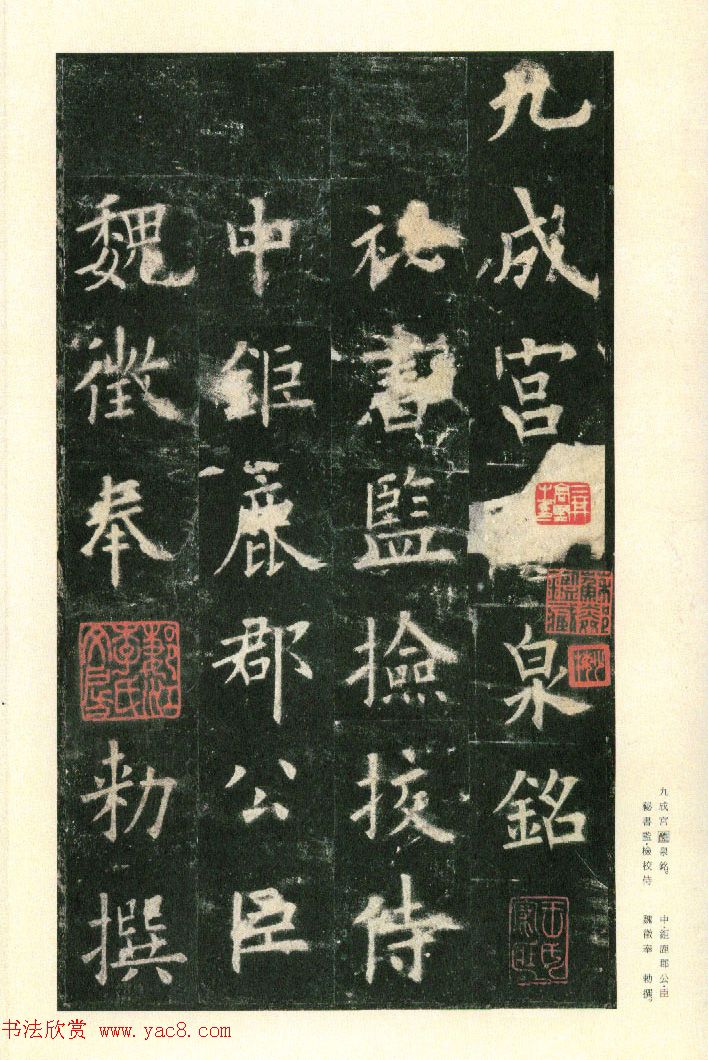 九成宮
泉銘
祕書監撿挍侍
中鉅鹿郡公臣
魏徵奉
勅撰
九成宮醴泉銘。
秘書監·檢校侍
中·鉅鹿郡公·臣
魏徵奉 勅撰。
书法欣赏 www.yac8.com